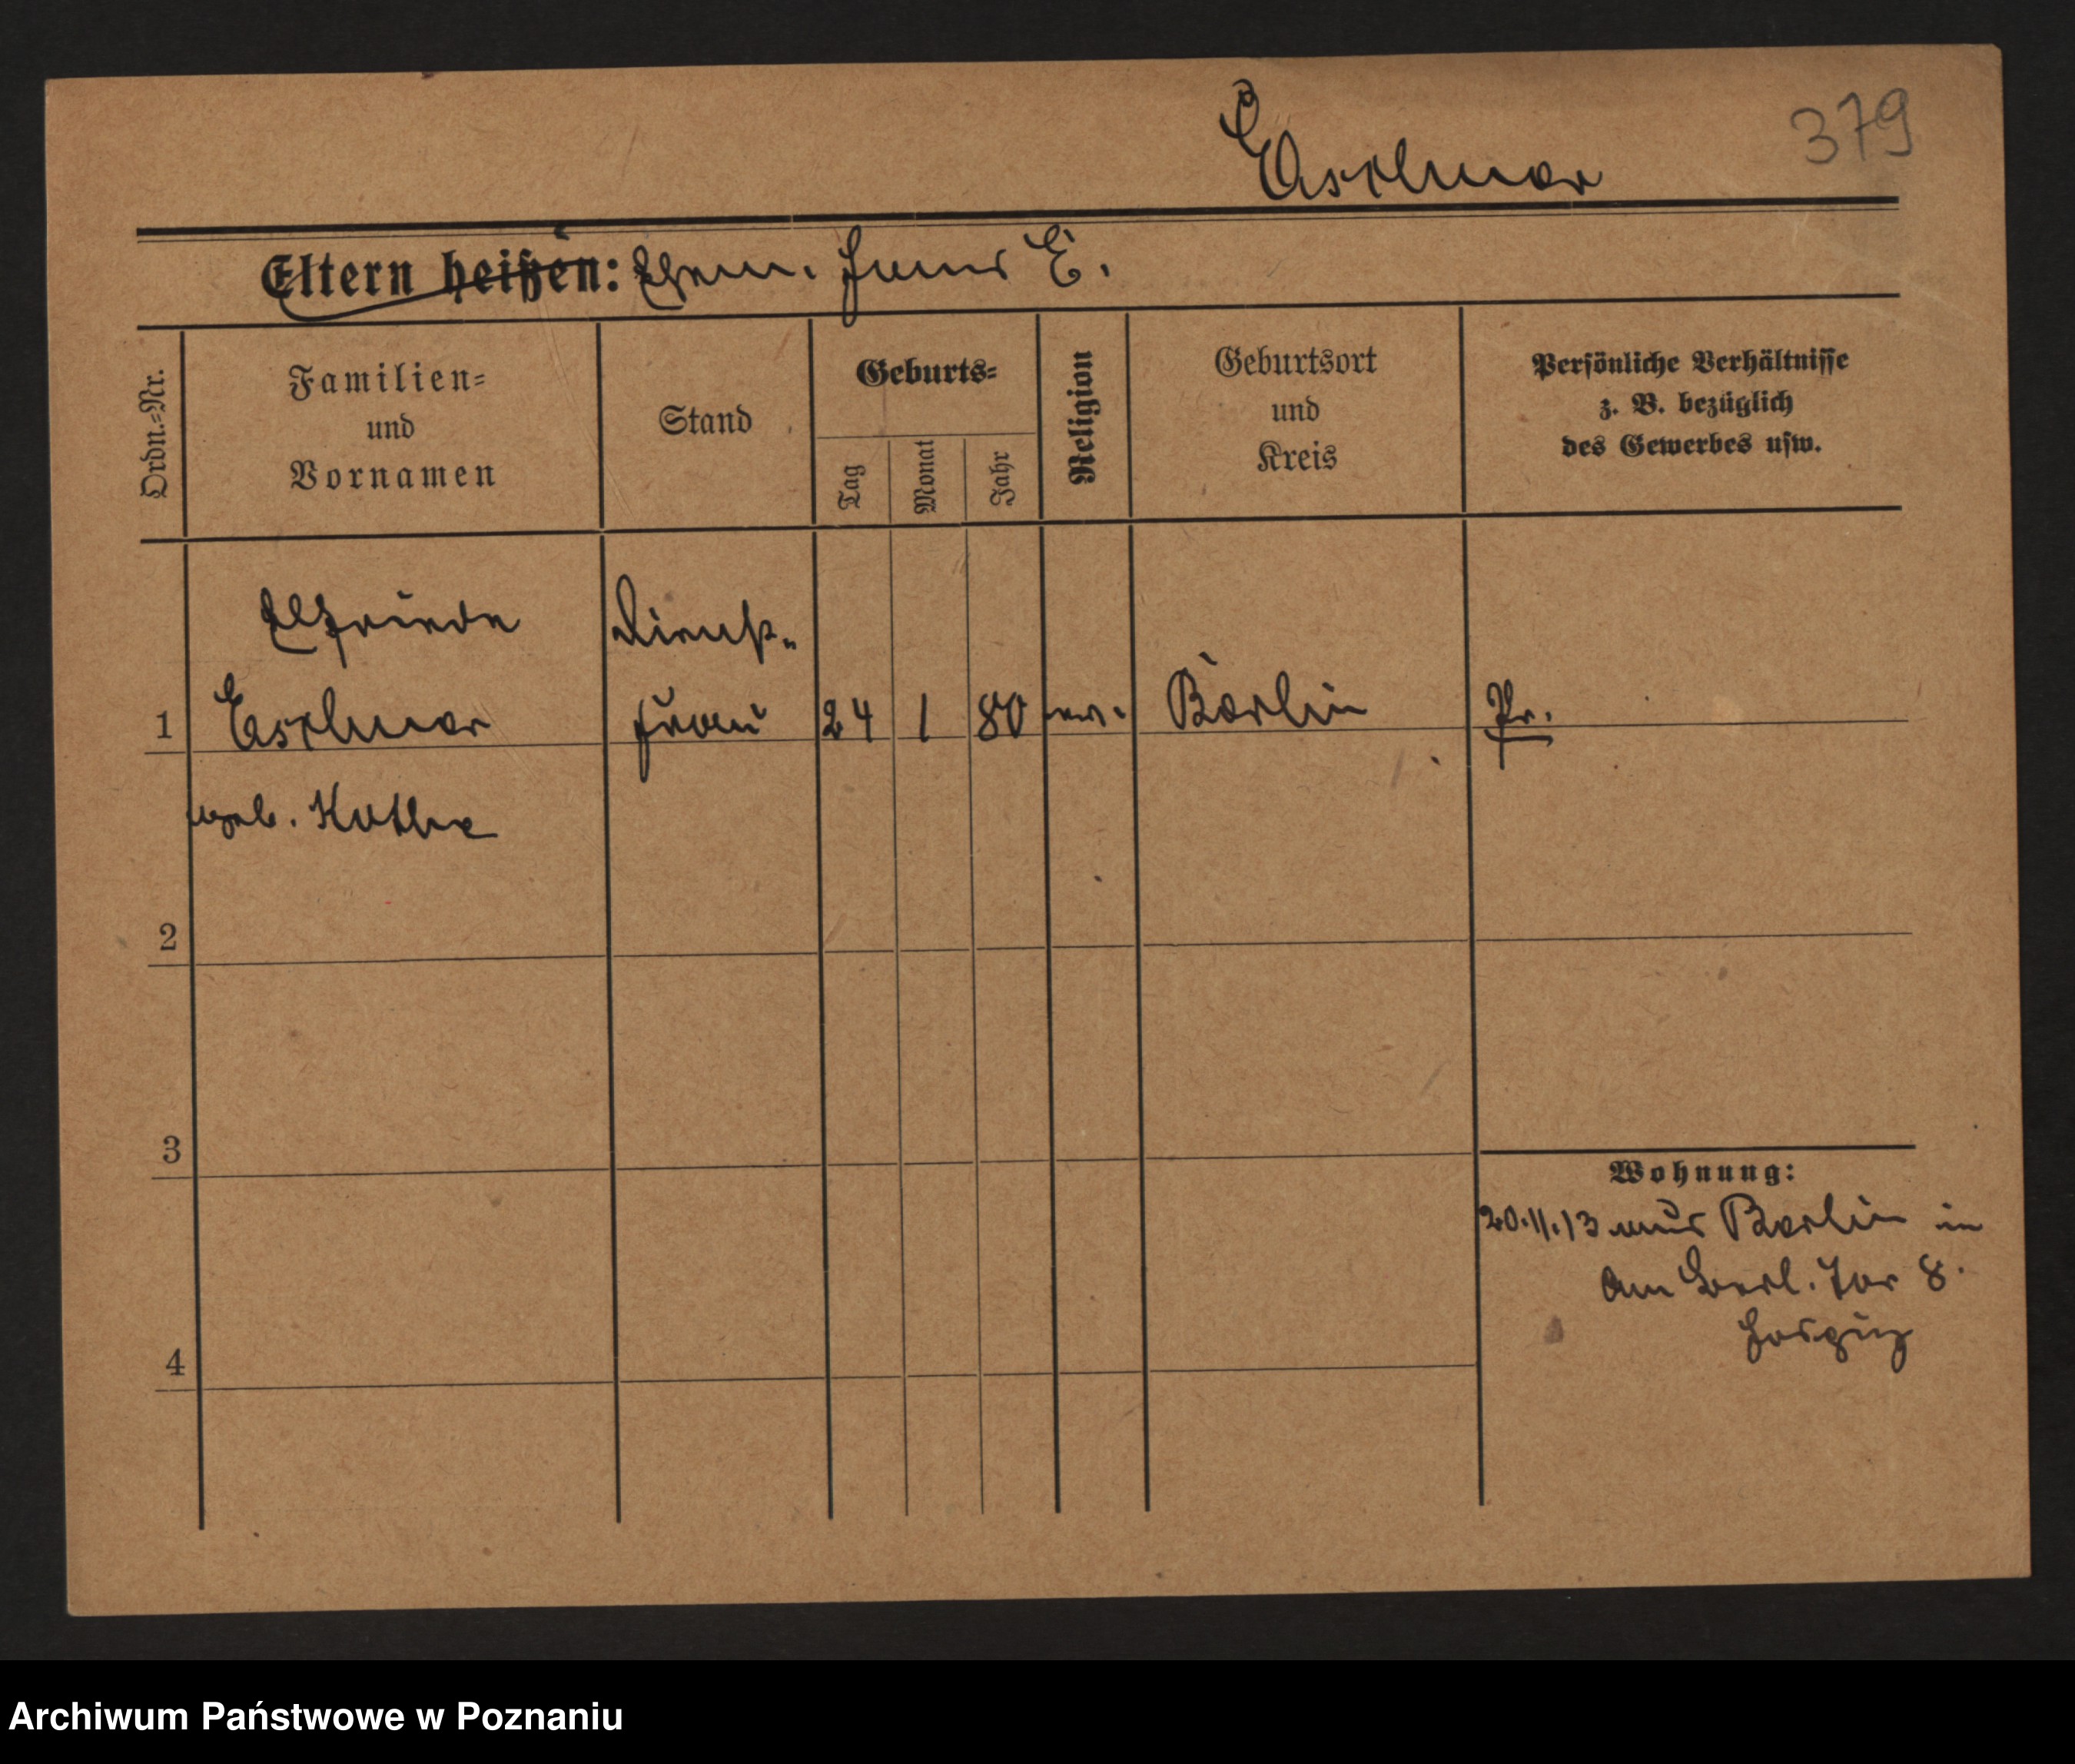 379
Eltern heißen: Ehem. Hans E.
Ordn.-Nr.
Familien-
und
Vornamen
Stand
Geburts-
Tag
Monat
Jahr
Religion
Geburtsort
und
Kreis
Persönliche Verhältnisse
z. B. bezüglich
des Gewerbes usw.
Elfriede
Dienst-
1
frau
24
1
80
ev.
Berlin
Pr.
geb. Kothe
2
3
Wohnung:
20.11.13 aus Berlin in
Am Berl. Tor 8.
Hospiz
4
Archiwum Państwowe w Poznaniu